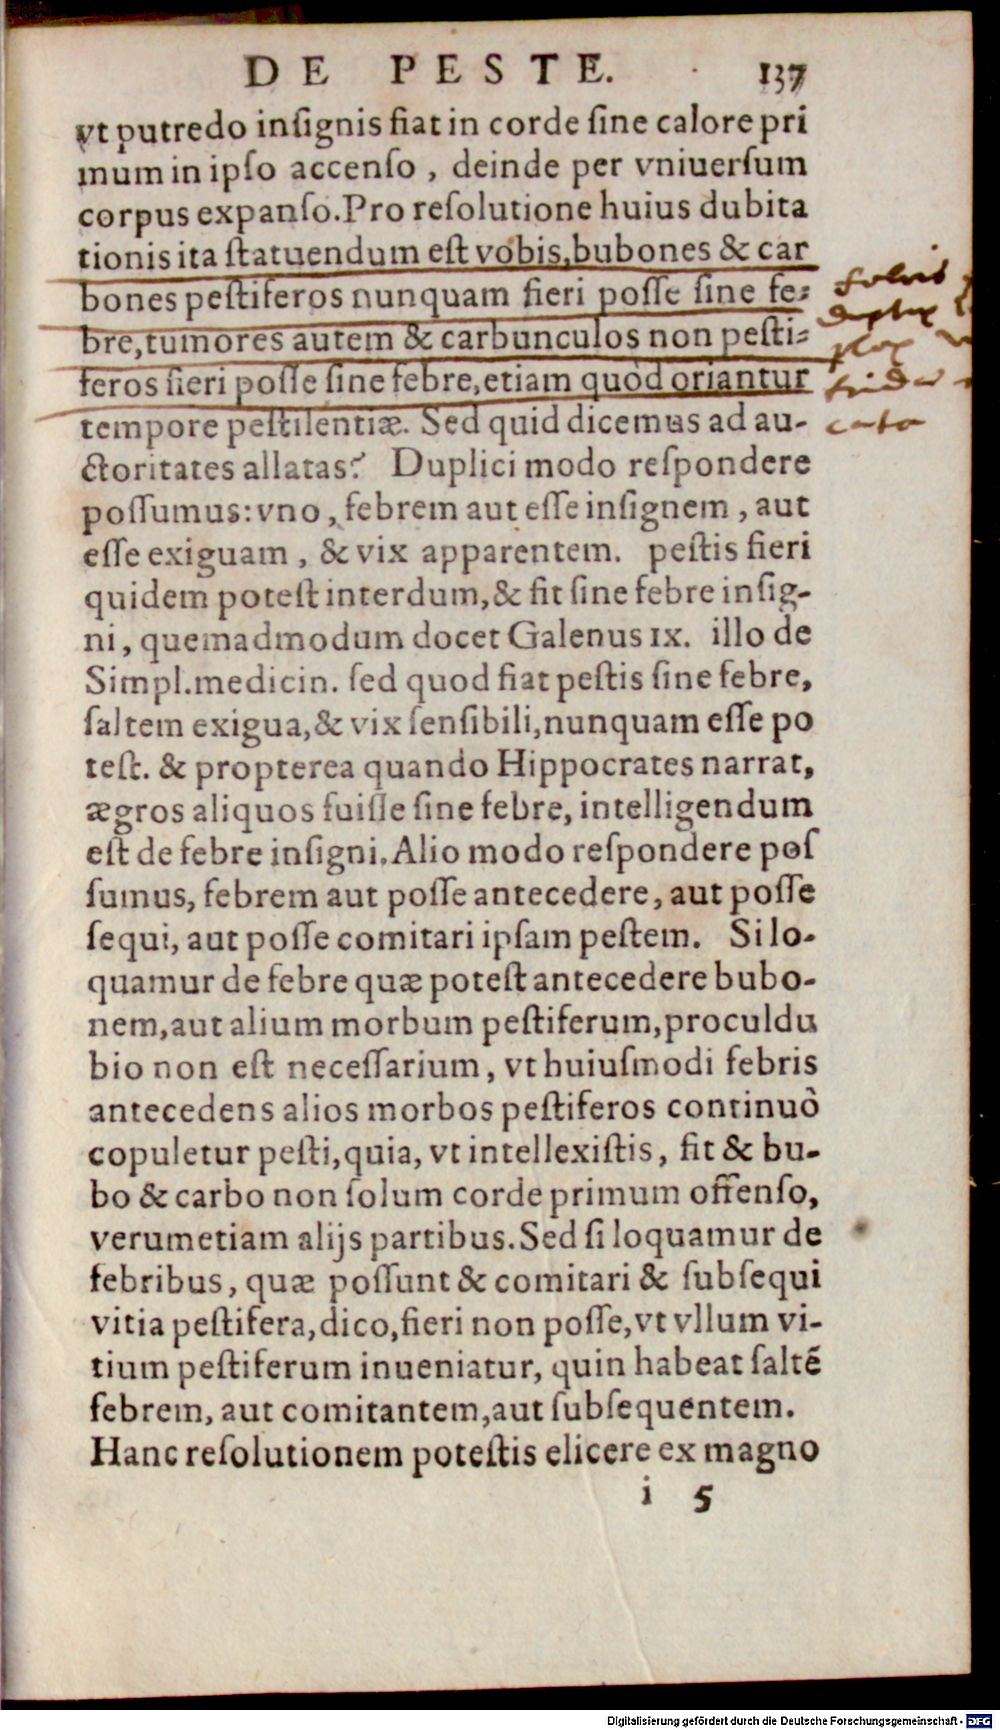 DE PESTE. 137
vt putredo insignis fiat in corde sine calore pri
mum in ipso accenso, deinde per vniuersum
corpus expanso. Pro resolutione huius dubita
tionis ita statuendum est vobis, bubones & car
bones pestiferos nunquam fieri posse sine fe-
bre, tumores autem & carbunculos non pesti-
feros fieri posse sine febre, etiam quòd oriantur
tempore pestilentiæ. Sed quid dicemus ad au-
ctoritates allatas? Duplici modo respondere
possumus: vno, febrem aut esse insignem, aut
esse exiguam, & vix apparentem. pestis fieri
quidem potest interdum, & fit sine febre insig-
ni, quemadmodum docet Galenus IX. illo de
Simpl. medicin. sed quod fiat pestis sine febre,
saltem exigua, & vix sensibili, nunquam esse po
test. & propterea quando Hippocrates narrat,
ægros aliquos fuisse sine febre, intelligendum
est de febre insigni. Alio modo respondere pos
sumus, febrem aut posse antecedere, aut posse
sequi, aut posse comitari ipsam pestem. Si lo-
quamur de febre quæ potest antecedere bubo-
nem, aut alium morbum pestiferum, proculdu
bio non est necessarium, vt huiusmodi febris
antecedens alios morbos pestiferos continuò
copuletur pesti, quia, vt intellexistis, fit & bu-
bo & carbo non solum corde primum offenso,
verumetiam alijs partibus. Sed si loquamur de
febribus, quæ possunt & comitari & subsequi
vitia pestifera, dico, fieri non posse, vt vllum vi-
tium pestiferum inueniatur, quin habeat saltē
febrem, aut comitantem, aut subsequentem.
Hanc resolutionem potestis elicere ex magno
i 5
Digitalisierung gefördert durch die Deutsche Forschungsgemeinschaft - DFG